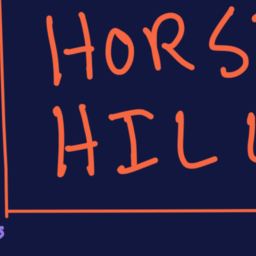 HORS
HILL